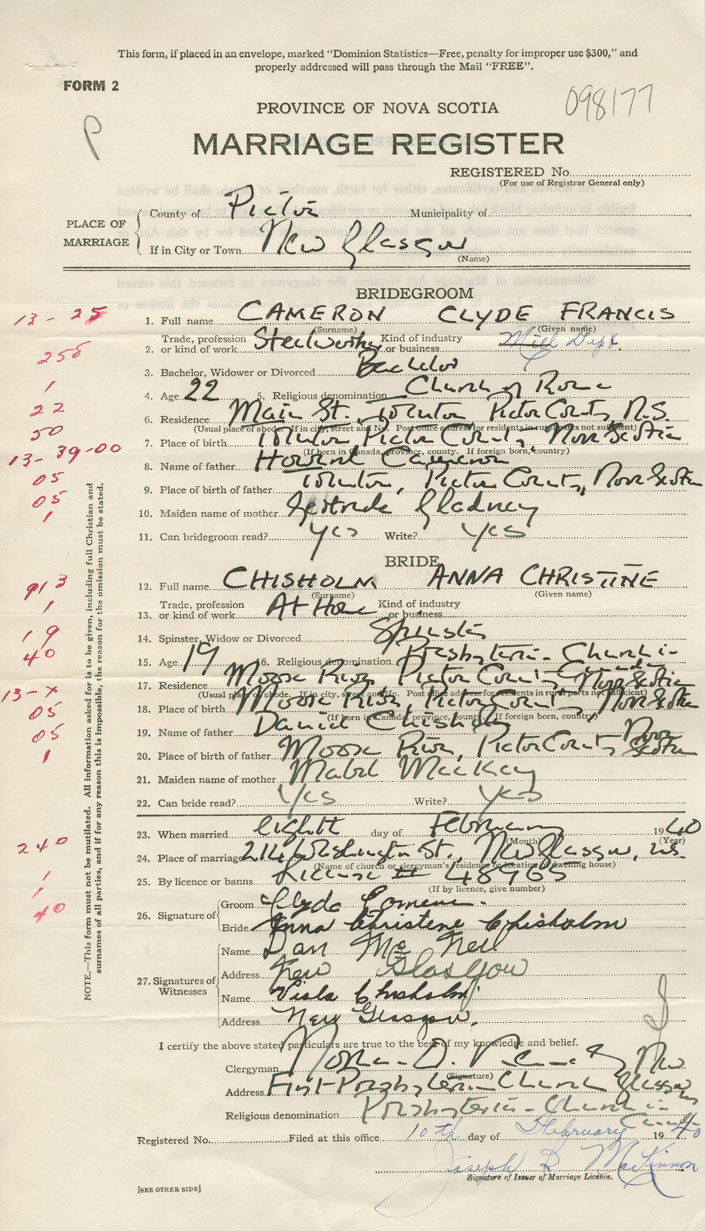 This form, if placed in an envelope, marked "Dominion Statistics—Free, penalty for improper use $300," and
properly addressed will pass through the Mail "FREE".
FORM 2
098177
P
PROVINCE OF NOVA SCOTIA
MARRIAGE REGISTER
REGISTERED No.
(For use of Registrar General only)
PLACE OF MARRIAGE
County of Pictou Municipality of
If in City or Town New Glasgow
(Name)
BRIDEGROOM
13-25
1. Full name CAMERON CLYDE FRANCIS
(Surname) (Given name)
Trade, profession Kind of industry
2. or kind of work Steelworker or business Mill Dept.
256
3. Bachelor, Widower or Divorced Bachelor
1
4. Age 22 5. Religious denomination Church of Rome
22
6. Residence Main St., Trenton Pictou County, N.S.
(Usual place of abode. If in city, street and No. Post office address for residents in rural parts not sufficient)
50
7. Place of birth Trenton, Pictou County, Nova Scotia
(If born in Canada, province, county. If foreign born, country)
13-39-00
8. Name of father Cameron
05
9. Place of birth of father Trenton, Pictou County, Nova Scotia
05
10. Maiden name of mother Gertrude Gladney
1
11. Can bridegroom read? Yes Write? Yes
BRIDE
913
12. Full name CHISHOLM ANNA CHRISTINE
(Surname) (Given name)
1
Trade, profession Kind of industry
13. or kind of work At Home or business
19
14. Spinster, Widow or Divorced Spinster
40
15. Age 19 16. Religious denomination Presbyterian Church in Canada
17. Residence Moose River, Pictou County, Nova Scotia
(Usual place of abode. If in city, street and No. Post office address for residents in rural parts not sufficient)
13-x
18. Place of birth Moose River, Pictou County, Nova Scotia
(If born in Canada, province, county. If foreign born, country)
05
19. Name of father Daniel Chisholm
05
20. Place of birth of father Moose River, Pictou County, Nova Scotia
1
21. Maiden name of mother Mabel MacKay
22. Can bride read? Yes Write? Yes
23. When married eighth day of February 1940
(Month) (Year)
240
24. Place of marriage Washington St., New Glasgow, N.S.
(Name of church or clergyman's residence or location of dwelling house)
1
25. By licence or banns License # 48965
(If by licence, give number)
1
40
26. Signature of
Groom Clyde Cameron
Bride Anna Christene Chisholm
27. Signatures of Witnesses
Name Dan Mc Neil
Address New Glasgow
Name Viola Chisholm
Address New Glasgow.
I certify the above stated particulars are true to the best of my knowledge and belief.
Clergyman D.
(Signature)
Address First Presbyterian Church New Glasgow N.S.
Religious denomination Presbyterian Church in Canada
Registered No. Filed at this office 10th day of February 1940
Joseph R MacKinnon
Signature of Issuer of Marriage Licence.
[SEE OTHER SIDE]
NOTE.—This form must not be mutilated. All information asked for is to be given, including full Christian and
surnames of all parties, and if for any reason this is impossible, the reason for the omission must be stated.